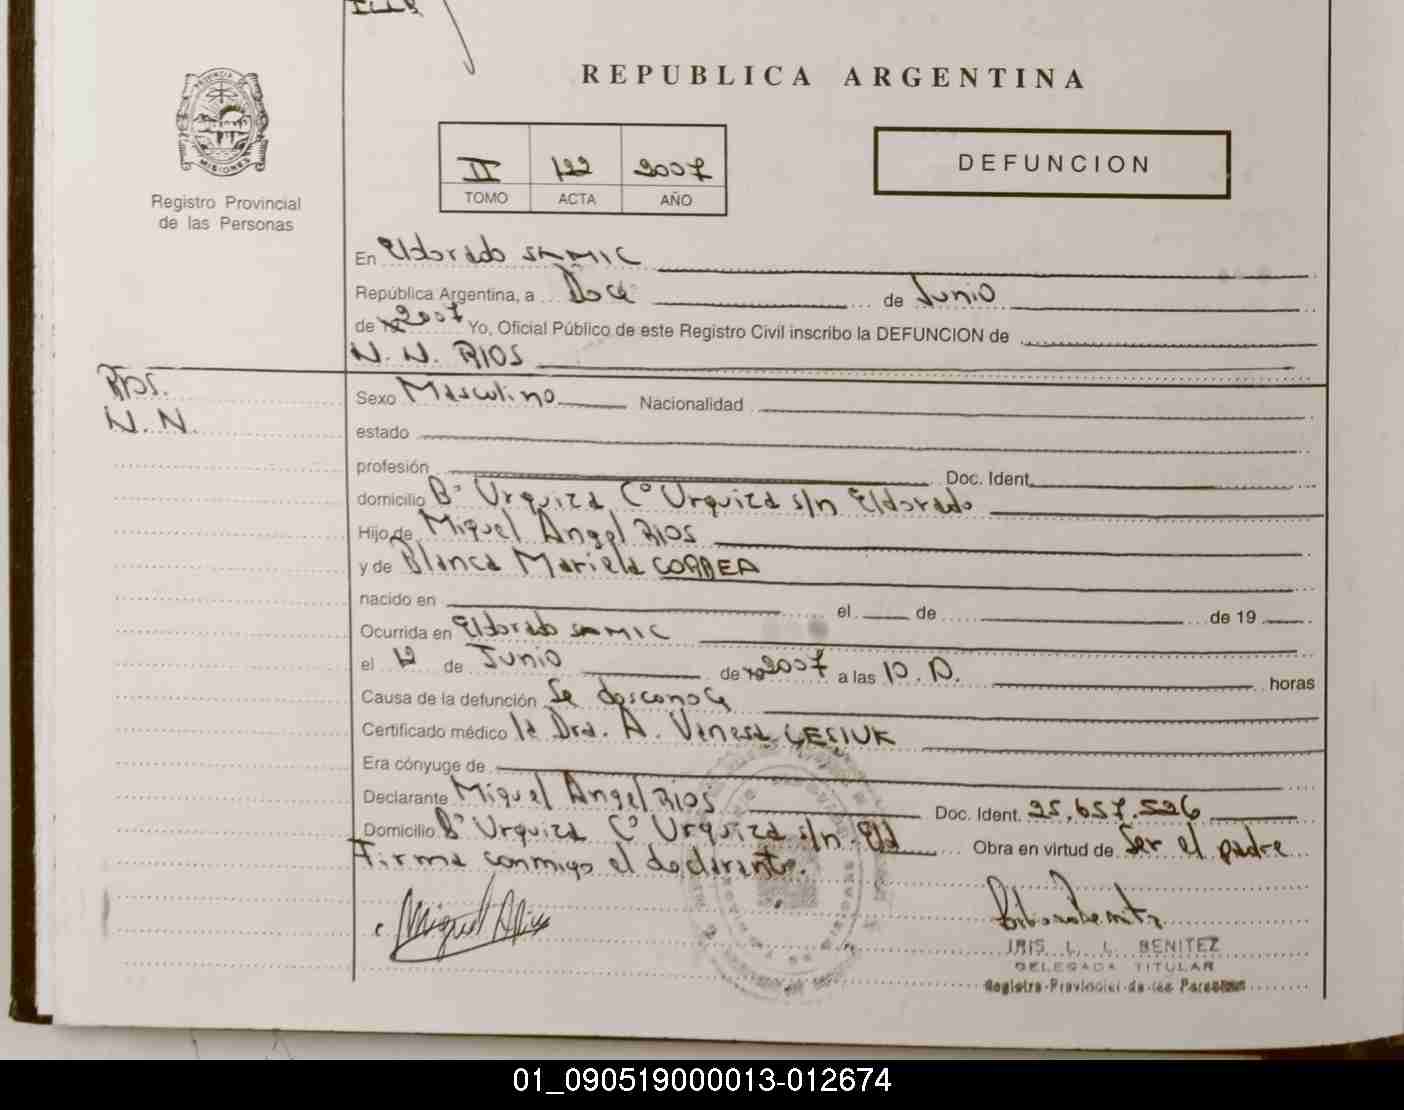 REPUBLICA ARGENTINA
PROVINCIA DE
MISIONES
Registro Provincial
de las Personas
II 122 2007
TOMO ACTA AÑO
DEFUNCION
En Eldorado SAMIC
República Argentina, a Doce de Junio
de 2007 Yo, Oficial Público de este Registro Civil inscribo la DEFUNCION de
N. N. RIOS
RIOS.
N. N.
Sexo Masculino Nacionalidad
estado
profesión Doc. Ident.
domicilio Bº Urquiza Cº Urquiza s/n Eldorado
Hijo de Miguel Angel RIOS
y de Blanca Mariela CORREA
nacido en el de de 19
Ocurrida en Eldorado SAMIC
el 12 de Junio de 19 2007 a las 10.10. horas
Causa de la defunción Se desconoce
Certificado médico la Dra. A. Vanesa LESIUK
Era cónyuge de
Declarante Miguel Angel RIOS Doc. Ident. 25.657.526
Domicilio Bº Urquiza Cº Urquiza s/n. Eld Obra en virtud de Ser el padre
Firma conmigo el declarante.
Miguel Rios
IRIS L. L. BENITEZ
DELEGADA TITULAR
Registro Provincial de las Personas
01_090519000013-012674